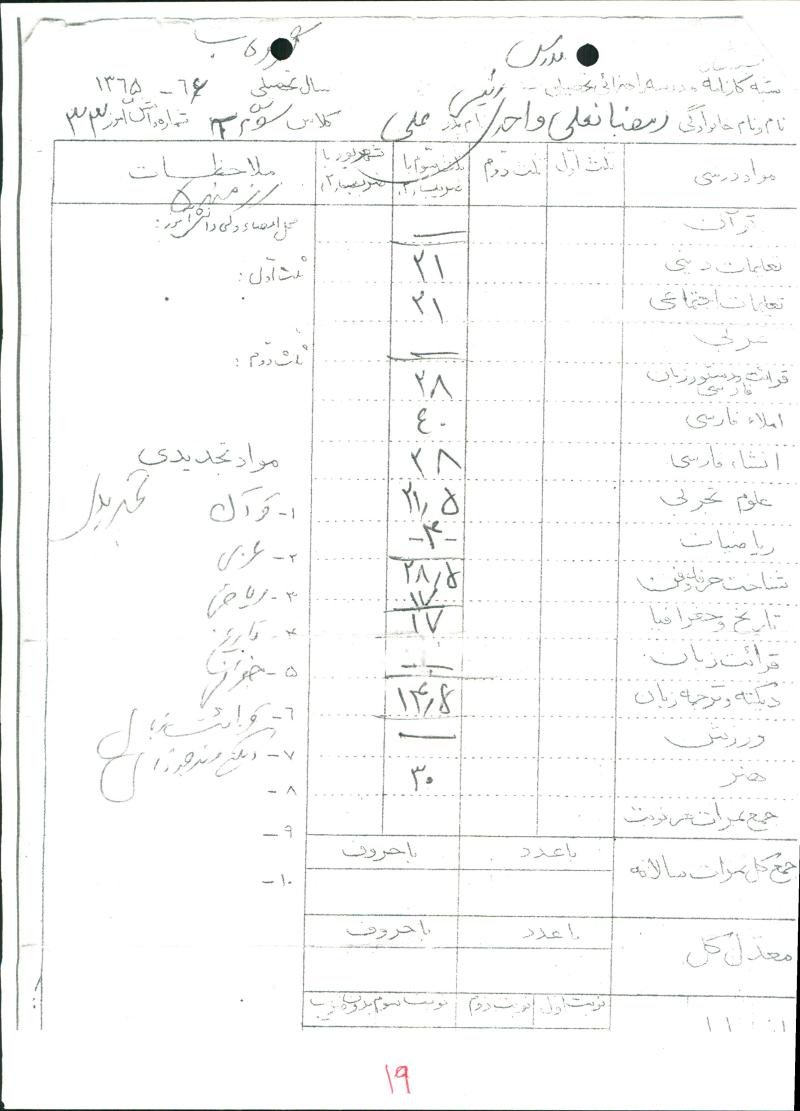 گروه ب
مدرس
سال تحصیلی ۶۶ - ۱۳۶۵
نام و نام خانوادگی رمضانعلی واحدی نام پدر علی کلاس سوم ۳ شماره دانش آموز ۳۳
مواد درسی | ثلث اول | ثلث دوم | ثلث سوم با ضریب ۲ | شهریور با ضریب ۲ | ملاحظات
قرآن —
محل امضاء ولی دانش آموز:
تعلیمات دینی ۲۱
ثلث اول:
تعلیمات اجتماعی ۲۱
عربی —
ثلث دوم:
قرائت و دستور زبان فارسی ۲۸
املاء فارسی ۴۰
انشاء فارسی ۲۸
مواد تجدیدی
علوم تجربی ۲۱٫۵
۱- قرآن
ریاضیات -۴-
۲- عربی
شناخت حرفه و فن ۲۸٫۵
۳- ریاضی
تاریخ و جغرافیا ۱۷
۴- تاریخ
قرائت زبان —
۵- جغرافیا
دیکته و ترجمه زبان ۱۴٫۵
۶- قرائت زبان
ورزش —
۷- دیکته و ترجمه زبان
هنر ۳۰
۸-
جمع نمرات هر نوبت
۹-
جمع کل نمرات سالانه | با عدد | با حروف
۱۰-
معدل کل | با عدد | با حروف
نوبت اول | نوبت دوم | نوبت سوم بدون ضریب
۱۹